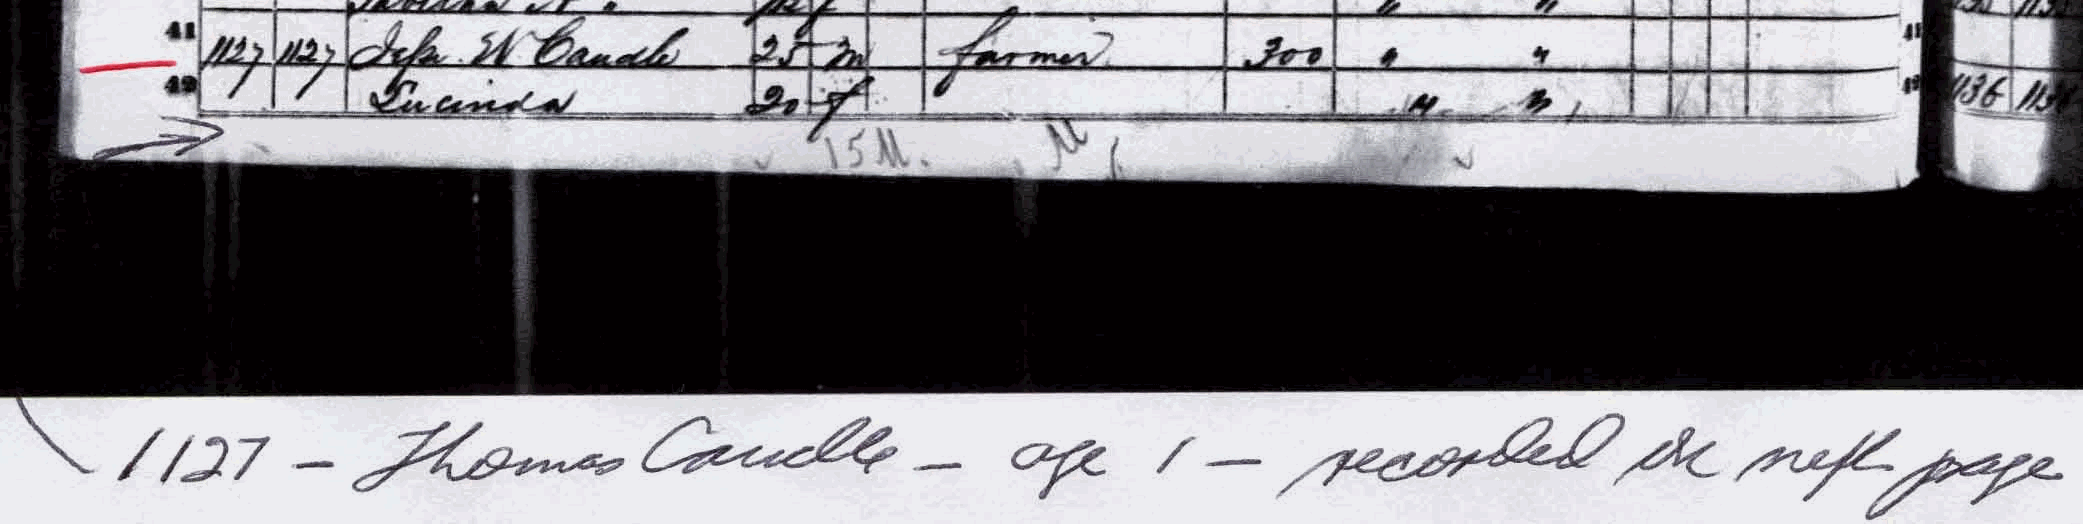 41 1127 1127 W Caudle 25 m farmer 300 " "
42 Lucinda 20 f " "
1136
15 M.
1127 - Thomas Caudle - age 1 - recorded on next page